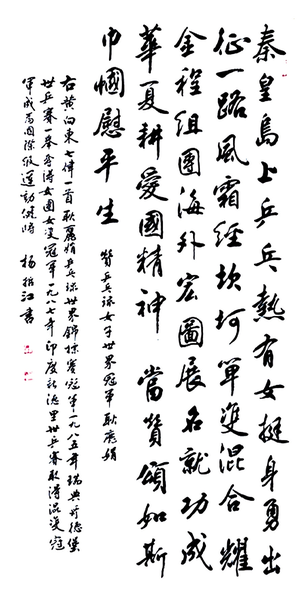 秦皇島上乒乓熱有女挺身勇出
征一路風霜經坎坷單雙混合耀
金程組團海外宏圖展名就功成
華夏耕愛國精神當贊頌如斯
巾幗慰平生
贊乒乓球女子世界冠軍耿麗娟
右黃向東七律一首耿麗娟乒乓球世界錦標賽冠軍一九八五年瑞典哥德堡
世乒賽一舉奪得女團女雙冠軍一九八七年印度新德里世乒賽取得混雙冠
軍成為國際級運動健將 楊 江書